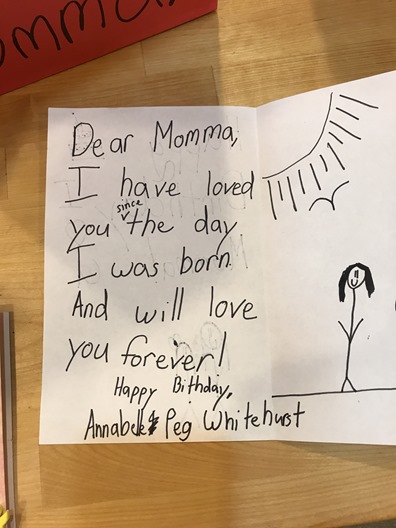 omma
Dear Momma,
I have loved
since
you the day
I was born.
And will love
you forever!
Happy Bithday,
Annabelle & Peg Whitehurst